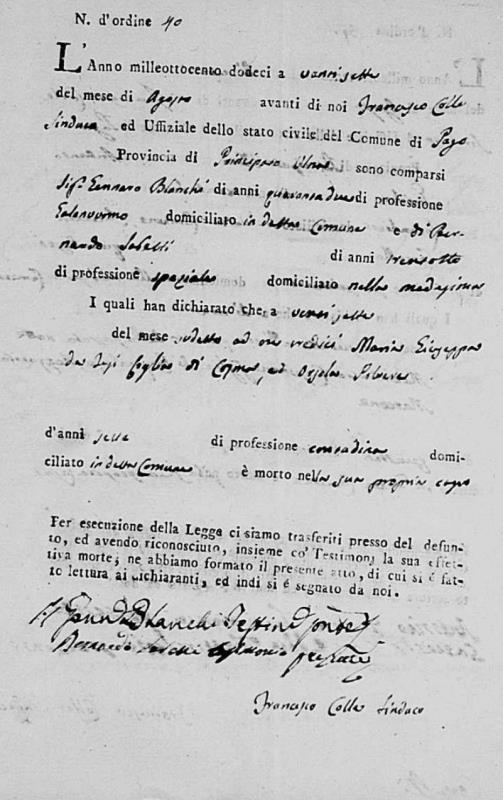 N. d'ordine 40
L'Anno milleottocento dodeci a ventisette
del mese di Agosto avanti di noi Francesco Colle
Sindaco ed Uffiziale dello stato civile del Comune di Pago
Provincia di Principato Ultra sono comparsi
Sig.r Gennaro Blanchi di anni quarantadue di professione
Galantuomo domiciliato in detto Comune e di Ber-
nardo di anni trentotto
di professione speziale domiciliato nella medesima
I quali han dichiarato che a ventisette
del mese sudetto ad ore tredici Maria Giuseppa
figlia di ed Orsola
d'anni sette di professione contadina domi-
ciliato in detto Comune è morto nella sua propria casa
Per esecuzione della Legge ci siamo trasferiti presso del defun-
to, ed avendo riconosciuto, insieme co' Testimonj la sua effet-
tiva morte; ne abbiamo formato il presente atto, di cui si é fat-
to lettura ai dichiaranti, ed indi si é segnato da noi.
Blanchi
Bernardo
Francesco Colle Sindaco